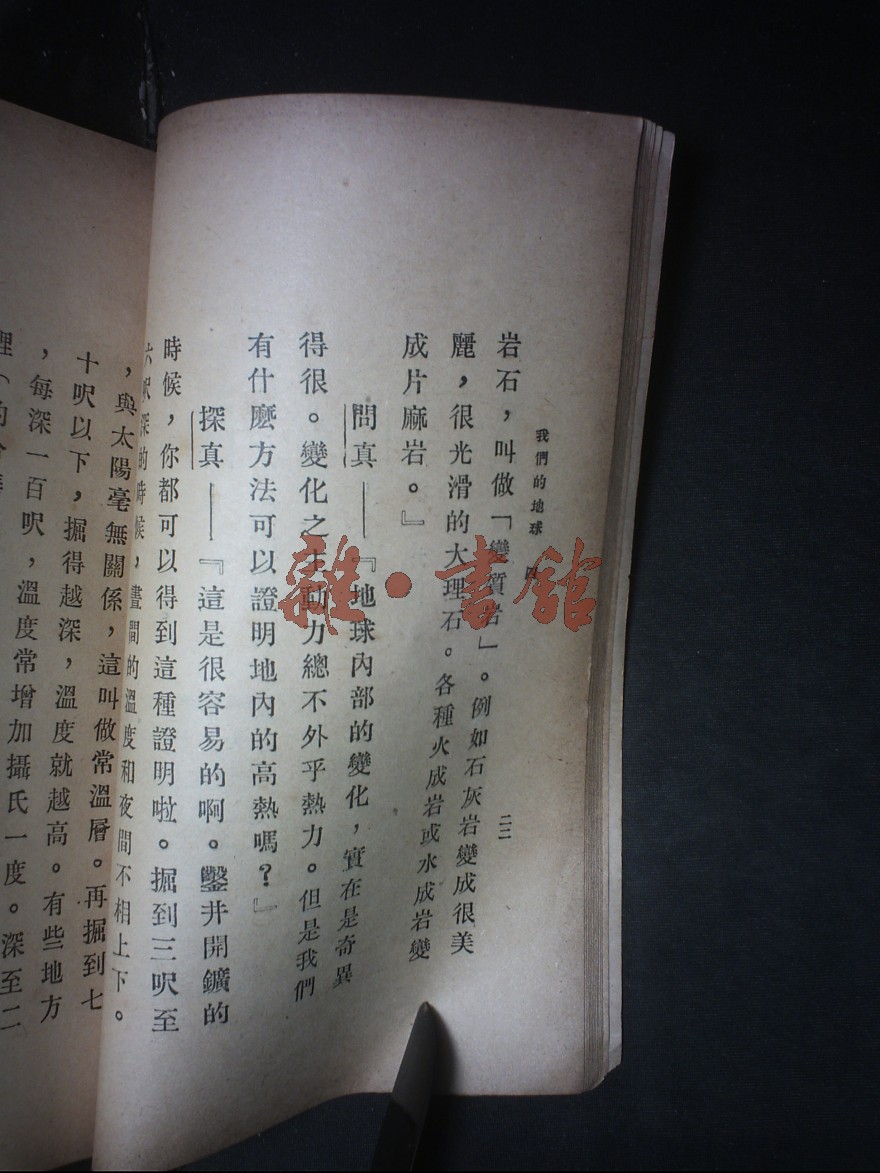 我們的地球　四
二二
岩石，叫做「變質岩」。例如石灰岩變成很美
麗，很光滑的大理石。各種火成岩或水成岩變
成片麻岩。』
問真——『地球內部的變化，實在是奇異
得很。變化之主動力總不外乎熱力。但是我們
有什麼方法可以證明地內的高熱嗎？』
探真——『這是很容易的啊。鑿井開鑛的
時候，你都可以得到這種證明啦。掘到三呎至
六呎深的時候，晝間的溫度和夜間不相上下。
，與太陽毫無關係，這叫做常溫層。再掘到七
十呎以下，掘得越深，溫度就越高。有些地方
，每深一百呎，溫度常增加攝氏一度。深至二
雜·書館